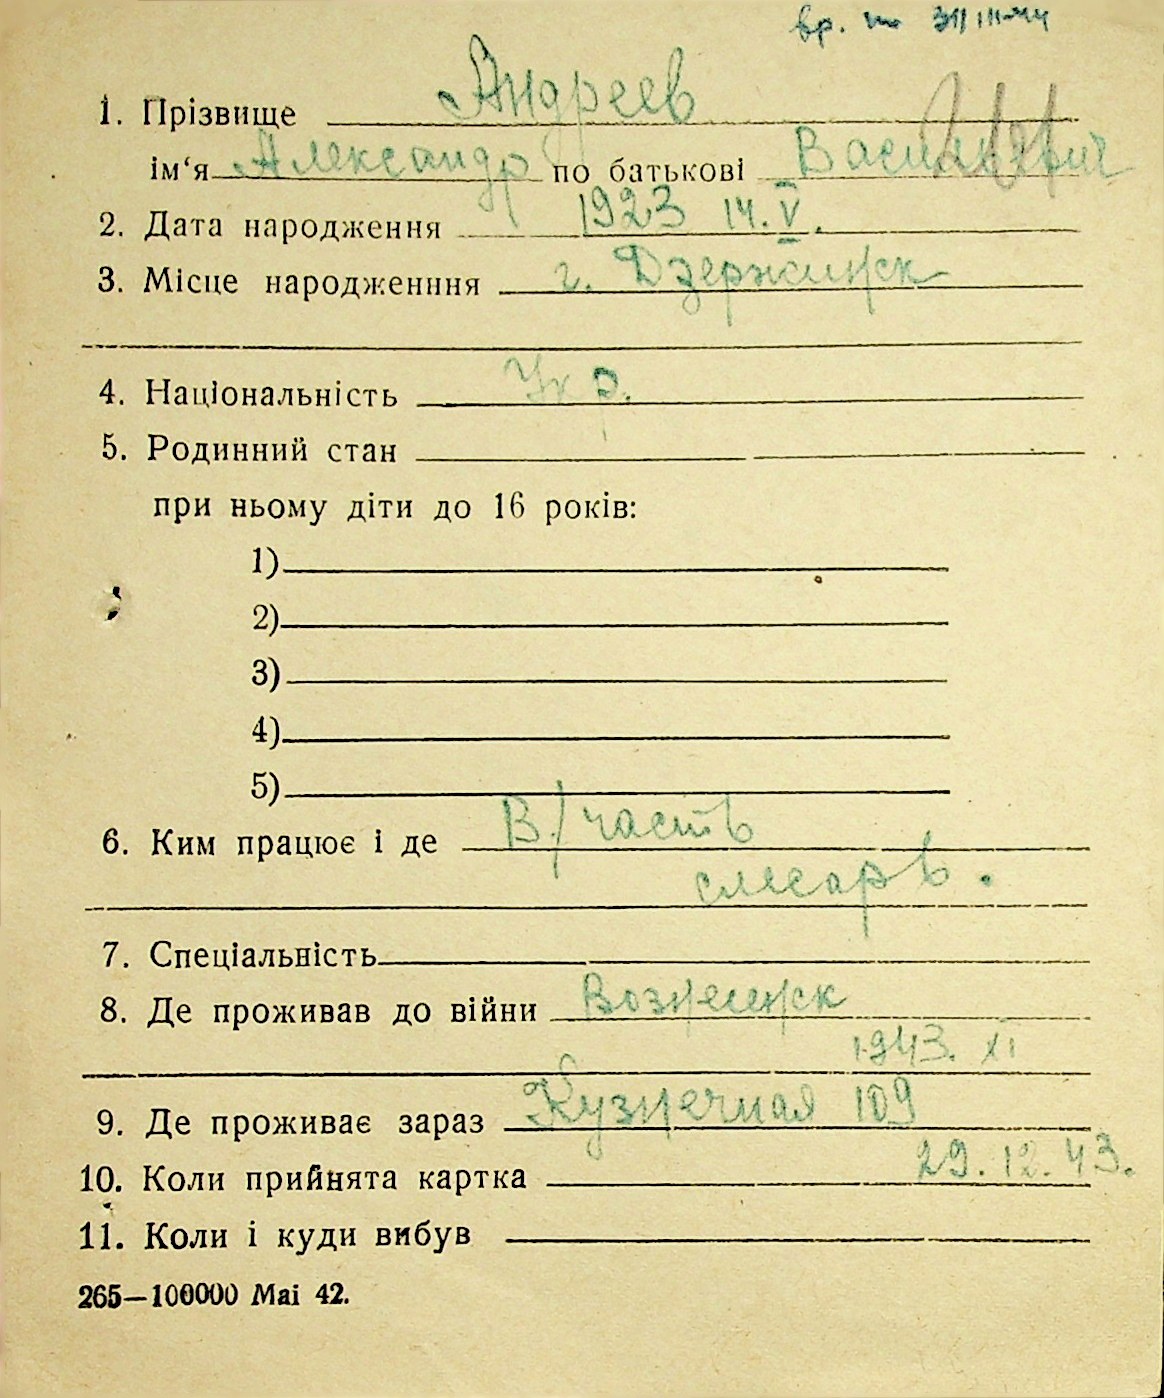 вр. по 31 III-44
1. Прізвище Андреев
ім‘я Александр по батькові Васильевич
2. Дата народження 1923 14.V.
3. Місце народженння г. Дзержинск
4. Національність Укр.
5. Родинний стан
при ньому діти до 16 років:
1)
2)
3)
4)
5)
6. Ким працює і де В/часть
слесарь.
7. Спеціальність
8. Де проживав до війни Вознесенск
1943. XI
9. Де проживає зараз Кузнечная 109
10. Коли прийнята картка 29.12.43.
11. Коли і куди вибув
265—100000 Mai 42.